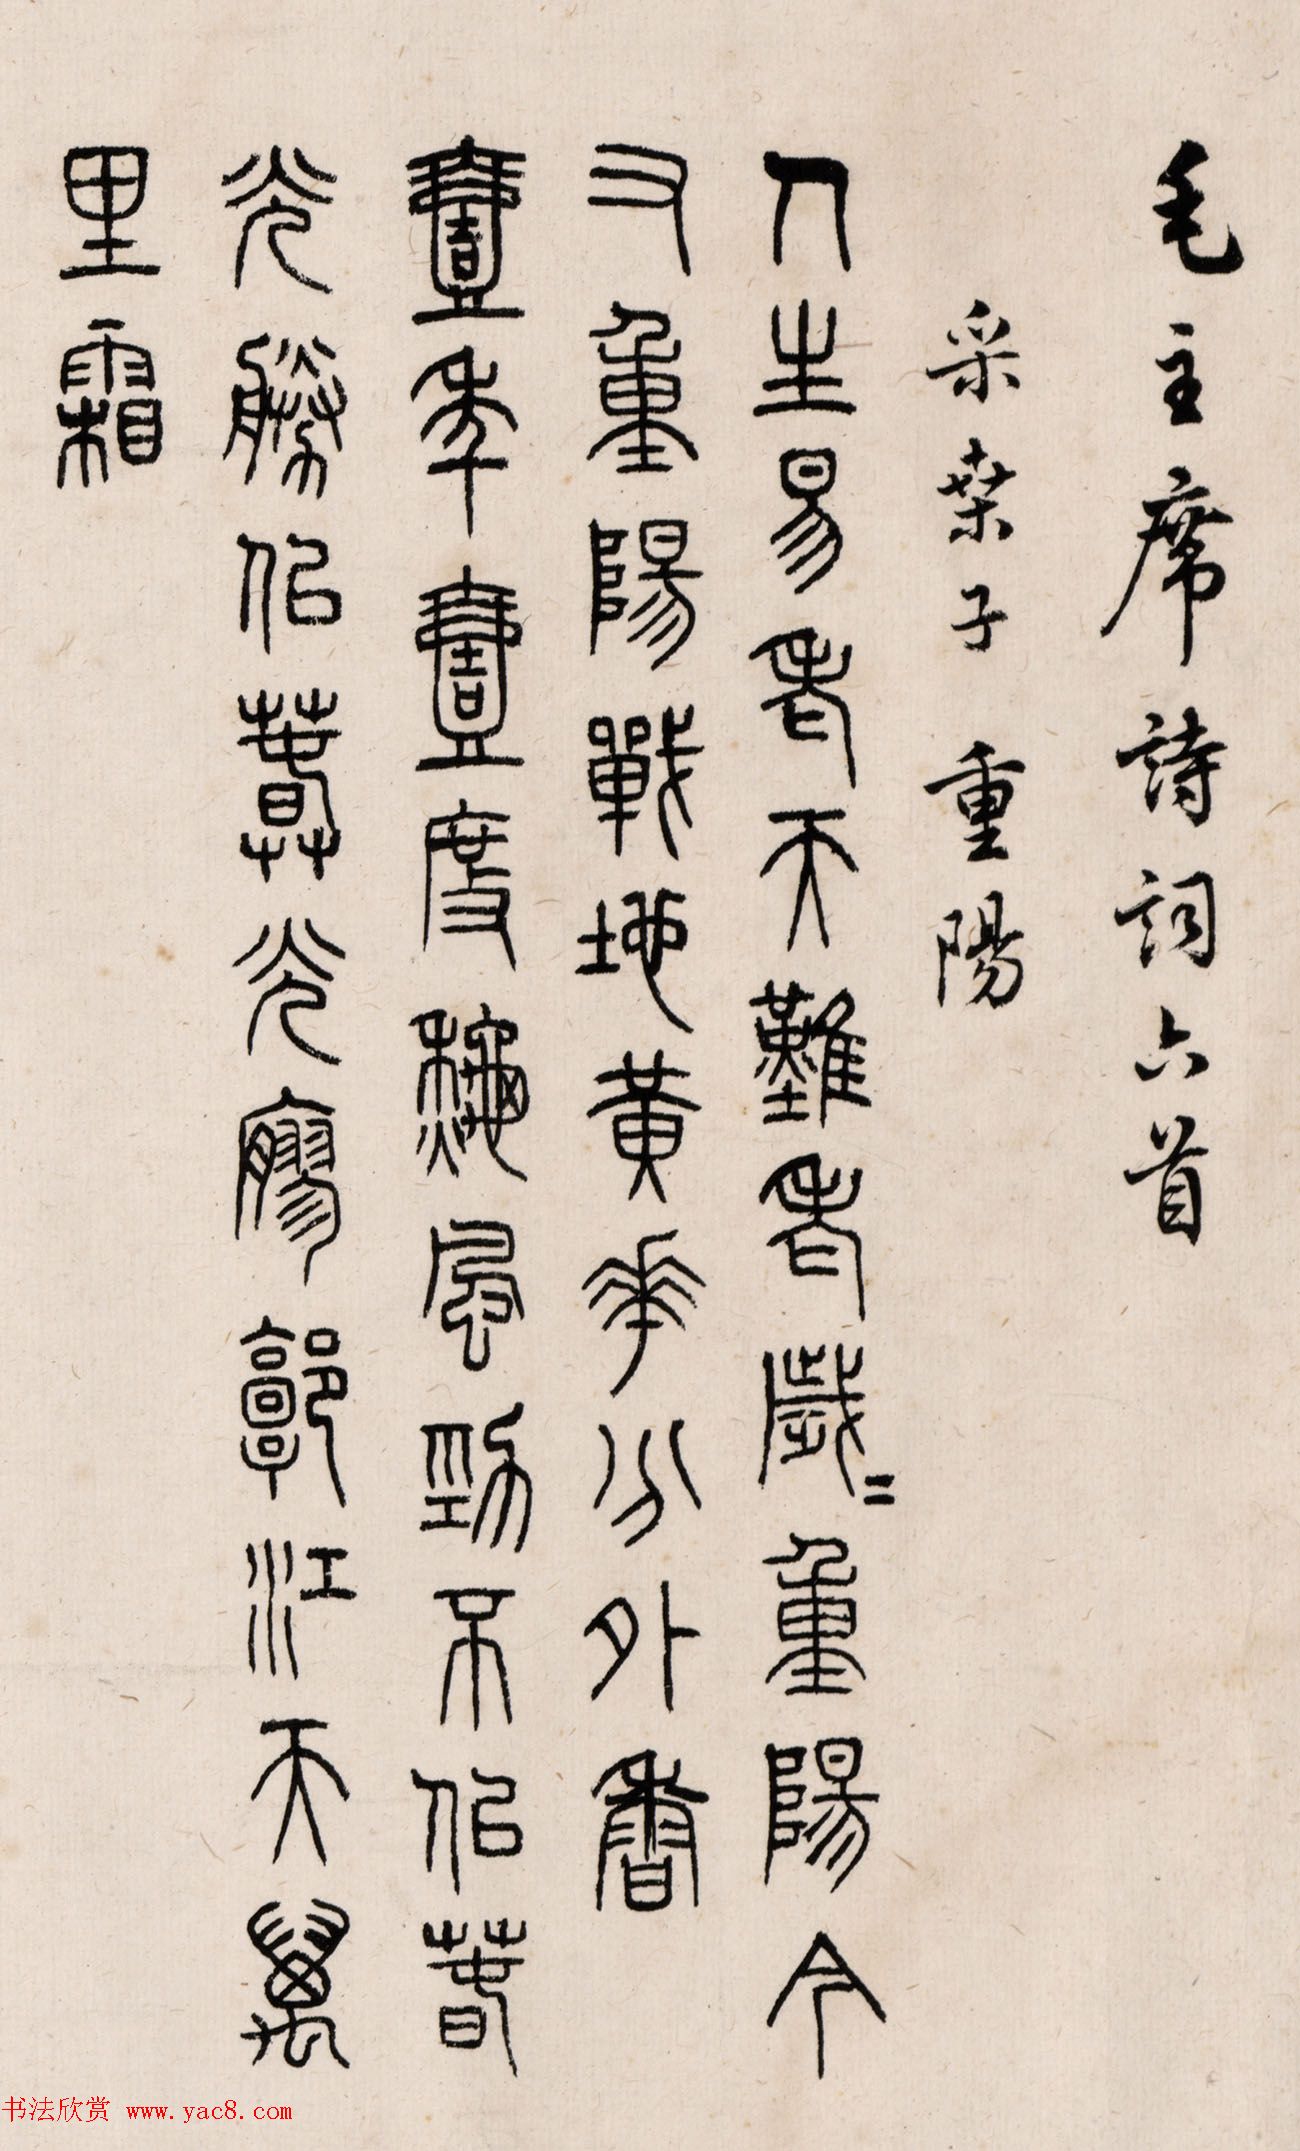 毛主席詩詞六首
采桑子 重陽
人生易老天難老歲〻重陽今
又重陽戰地黃華分外香
壹年壹度秋風勁不佀春
光勝佀春光廖郭江天萬
里霜
书法欣赏 www.yac8.com